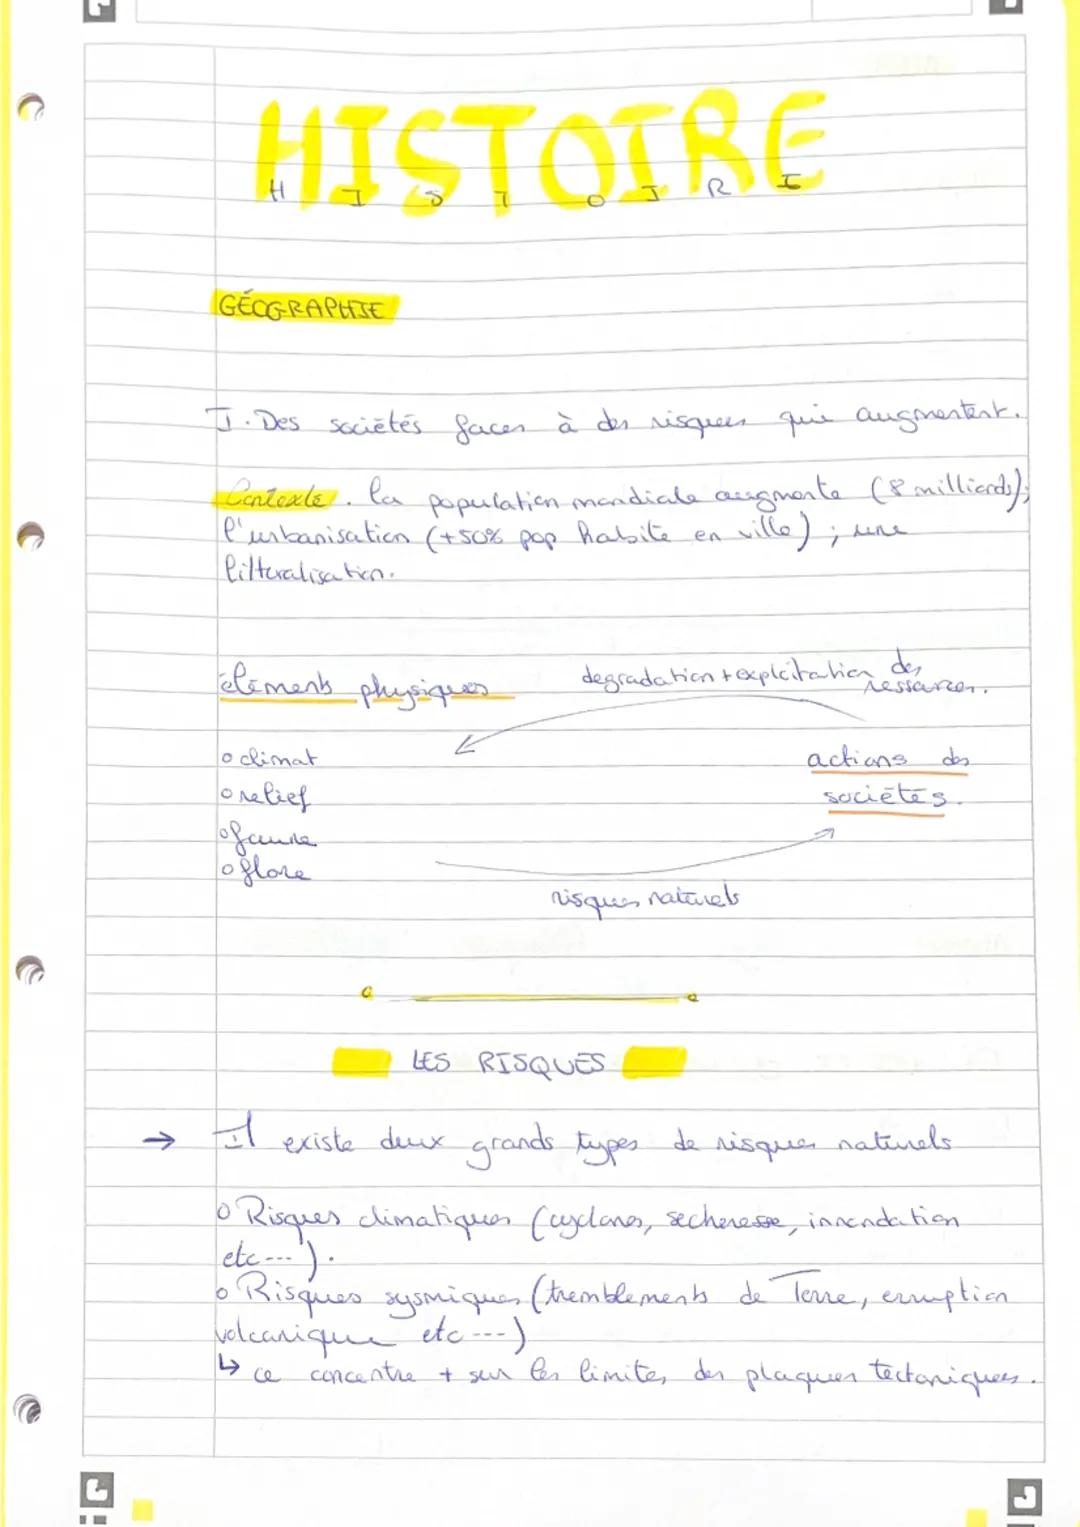 HISTOIRE
H I S T O I R E
GÉOGRAPHIE
I. Des sociétés faces à des risques qui augmentent.
Contexte. la population mondiale augmente (8 milliards);
l'urbanisation (+50% pop habite en ville) ; une
litturalisation.
élements physiques
degradation + explcitation des
ressources.
o climat
o relief
o faune
o flore
actions des
sociétés.
risques naturels
LES RISQUES
→ Il existe deux grands types de risques naturels
o Risques climatiques (cyclones, secheresse, innondation
etc---).
o Risques sysmiques (tremblements de Terre, erruption
volcanique etc---)
↳ ce concentre + sur les limites des plaques tectoniques.